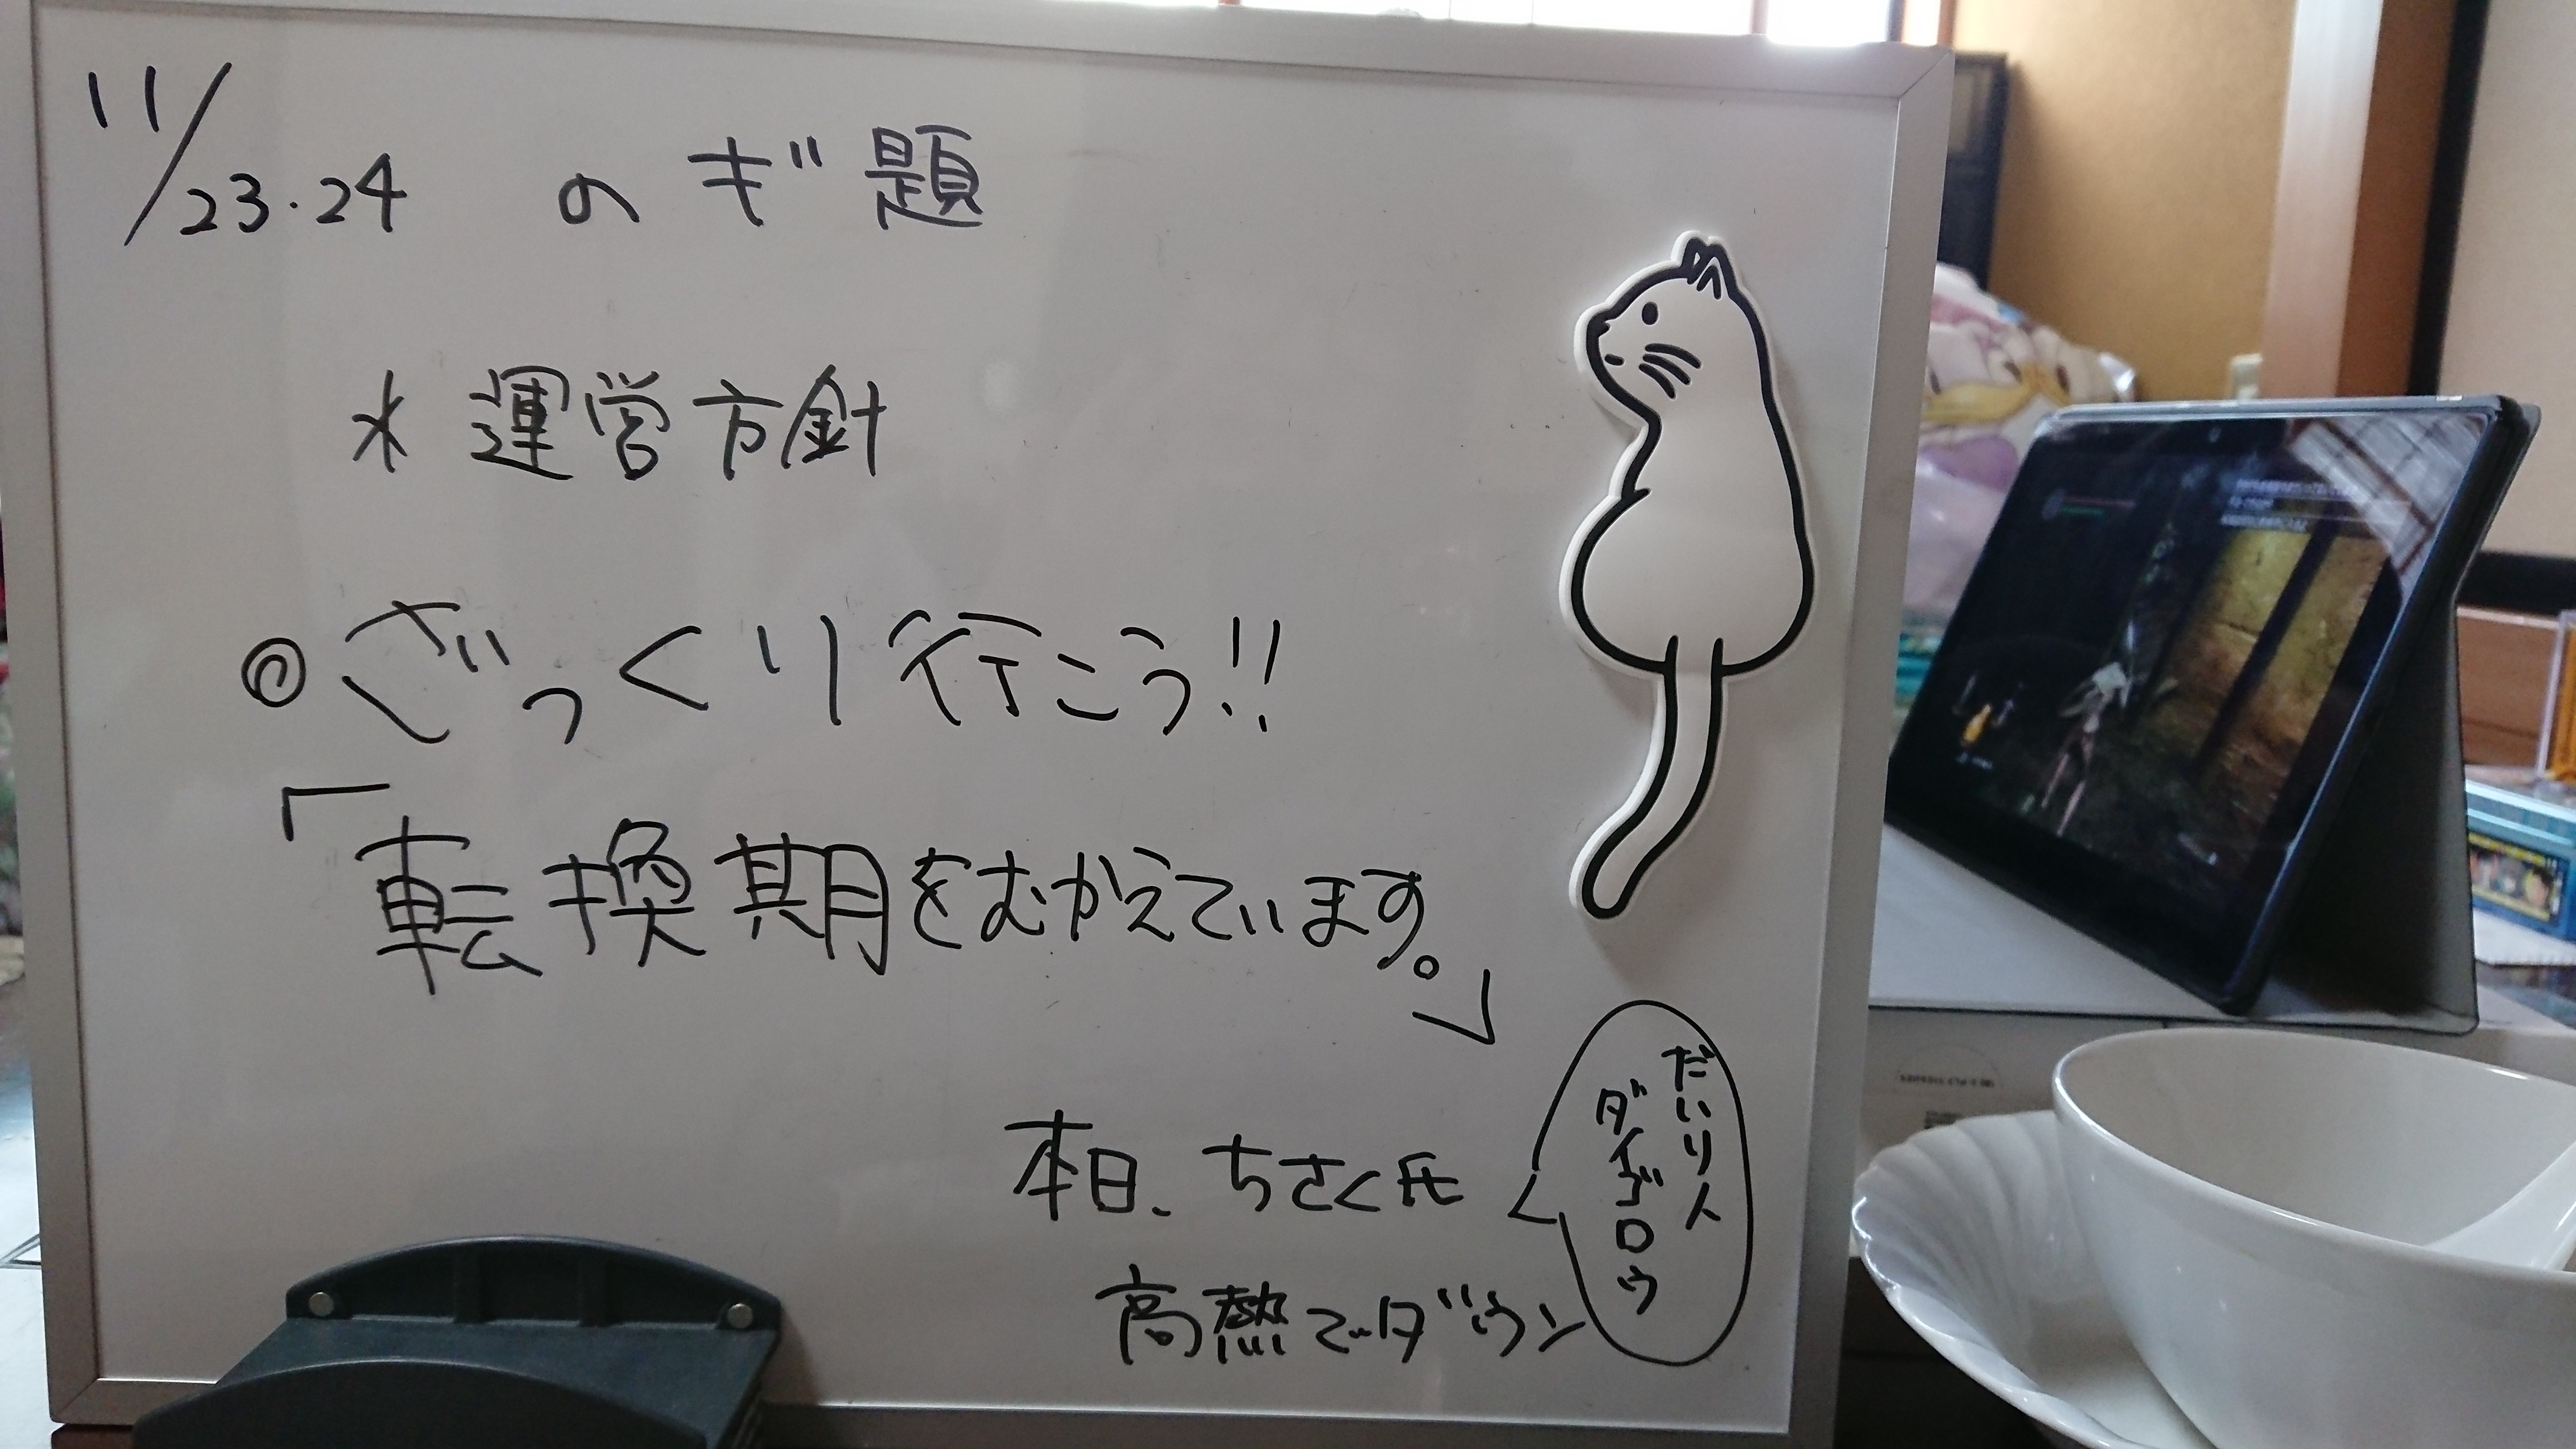 11/23.24 のギ題
* 運営方針
◎ ざっくり行こう!!
「転換期をむかえています。」
本日、ちさく氏
高熱でダウン
だいり人
ダイゴロウ